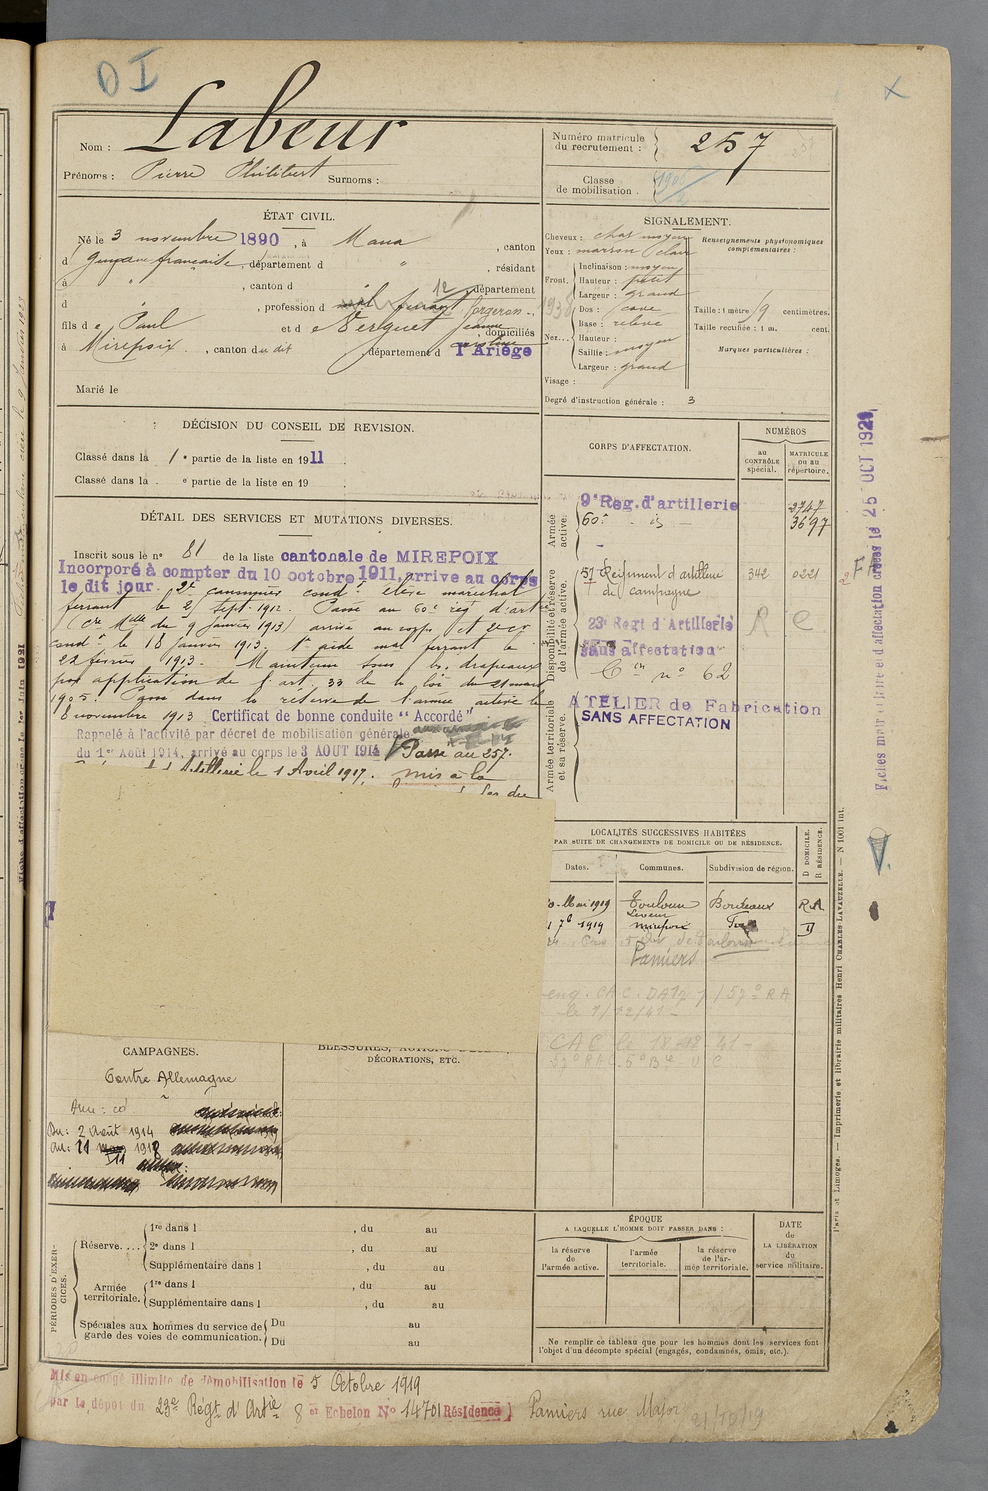 D I
Nom : Labeur
Prénoms : Pierre Philibert Surnoms :
Numéro matricule du recrutement : 257
Classe de mobilisation .
ÉTAT CIVIL.
Né le 3 novembre 1890, à Mana, canton
d Guyane française, département d " , résidant
à " , canton d 12 département
d " , profession d forgeron
fils de Paul et de Verguet Jeanne, domiciliés
à Mirepoix, canton du dit, département d l'Ariège
Marié le
SIGNALEMENT.
Cheveux : chat. moyen
Yeux : marron clair
Renseignements physionomiques complémentaires :
Front. Inclinaison : moyen
Hauteur : petit
Largeur : grand
Nez... Dos : cave
Base : relevé
Hauteur :
Saillie : moyen
Largeur : grand
Visage :
Taille : 1 mètre 79 centimètres.
Taille rectifiée : 1 m. cent.
Marques particulières :
Degré d'instruction générale : 3
DÉCISION DU CONSEIL DE REVISION.
Classé dans la 1e partie de la liste en 1911
Classé dans la e partie de la liste en 19
CORPS D'AFFECTATION.
NUMÉROS
au CONTRÔLE spécial.
MATRICULE ou au répertoire.
Armée active.
9e Reg. d'artillerie 2747
60e - d° - 3697
Disponibilité et réserve de l'armée active.
57 Régiment d'artillerie 342 0221
de campagne
23e Regt d'Artillerie R C
sans affectation
Cie n° 62
Armée territoriale et sa réserve.
ATELIER de Fabrication
SANS AFFECTATION
DÉTAIL DES SERVICES ET MUTATIONS DIVERSES.
Inscrit sous le n° 81 de la liste cantonale de MIREPOIX
Incorporé à compter du 10 octobre 1911, arrive au corps
le dit jour. 2e canonnier condr élève maréchal
ferrant le 2 Sept. 1912. Passé au 60e rég d'artie
(Cre Mlle du 9 janvier 1913) arrivé au corps et 2e cr
condr le 18 janvier 1913. 1er aide mal ferrant le
22 février 1913. Maintenu sous les drapeaux
par application de l'art. 33 de la loi du 21 mars
1905. Passé dans la réserve de l'armée active le
8 novembre 1913 Certificat de bonne conduite "Accordé"
Rappelé à l'activité par décret de mobilisation générale
du 1er Août 1914, arrivé au corps le 3 AOUT 1914 Passé au 257e
d'Artillerie le 1 Avril 1917. mis à la
LOCALITÉS SUCCESSIVES HABITÉES
PAR SUITE DE CHANGEMENTS DE DOMICILE OU DE RÉSIDENCE.
Dates. Communes. Subdivision de région. D DOMICILE. R RÉSIDENCE.
Mai 1919 Bordeaux R.A
1919 Mirepoix D
Pamiers
CAC le 18-12-41
CAMPAGNES.
BLESSURES, ACTIONS
DÉCORATIONS, ETC.
Contre Allemagne
Du : 2 Août 1914
au : 11 1918
PÉRIODES D'EXERCICES.
Réserve.... 1re dans l , du au
2e dans l , du au
Supplémentaire dans l , du au
Armée territoriale. 1re dans l , du au
Supplémentaire dans l , du au
Spéciales aux hommes du service de garde des voies de communication. Du au
Du au
ÉPOQUE
A LAQUELLE L'HOMME DOIT PASSER DANS :
la réserve de l'armée active.
l'armée territoriale.
la réserve de l'armée territoriale.
DATE de LA LIBÉRATION du service militaire.
Ne remplir ce tableau que pour les hommes dont les services font
l'objet d'un décompte spécial (engagés, condamnés, omis, etc.).
Mis en congé illimité de démobilisation le 5 Octobre 1919
par le dépôt du 23e Régt d'Artie 8e Echelon No 14701 Résidence) Pamiers rue Major
Fiches matriculaire et d'affectation créées le 25 OCT 1921
Paris et Limoges. — Imprimerie et librairie militaires Henri CHARLES-LAVAUZELLE. — N 1001 int.